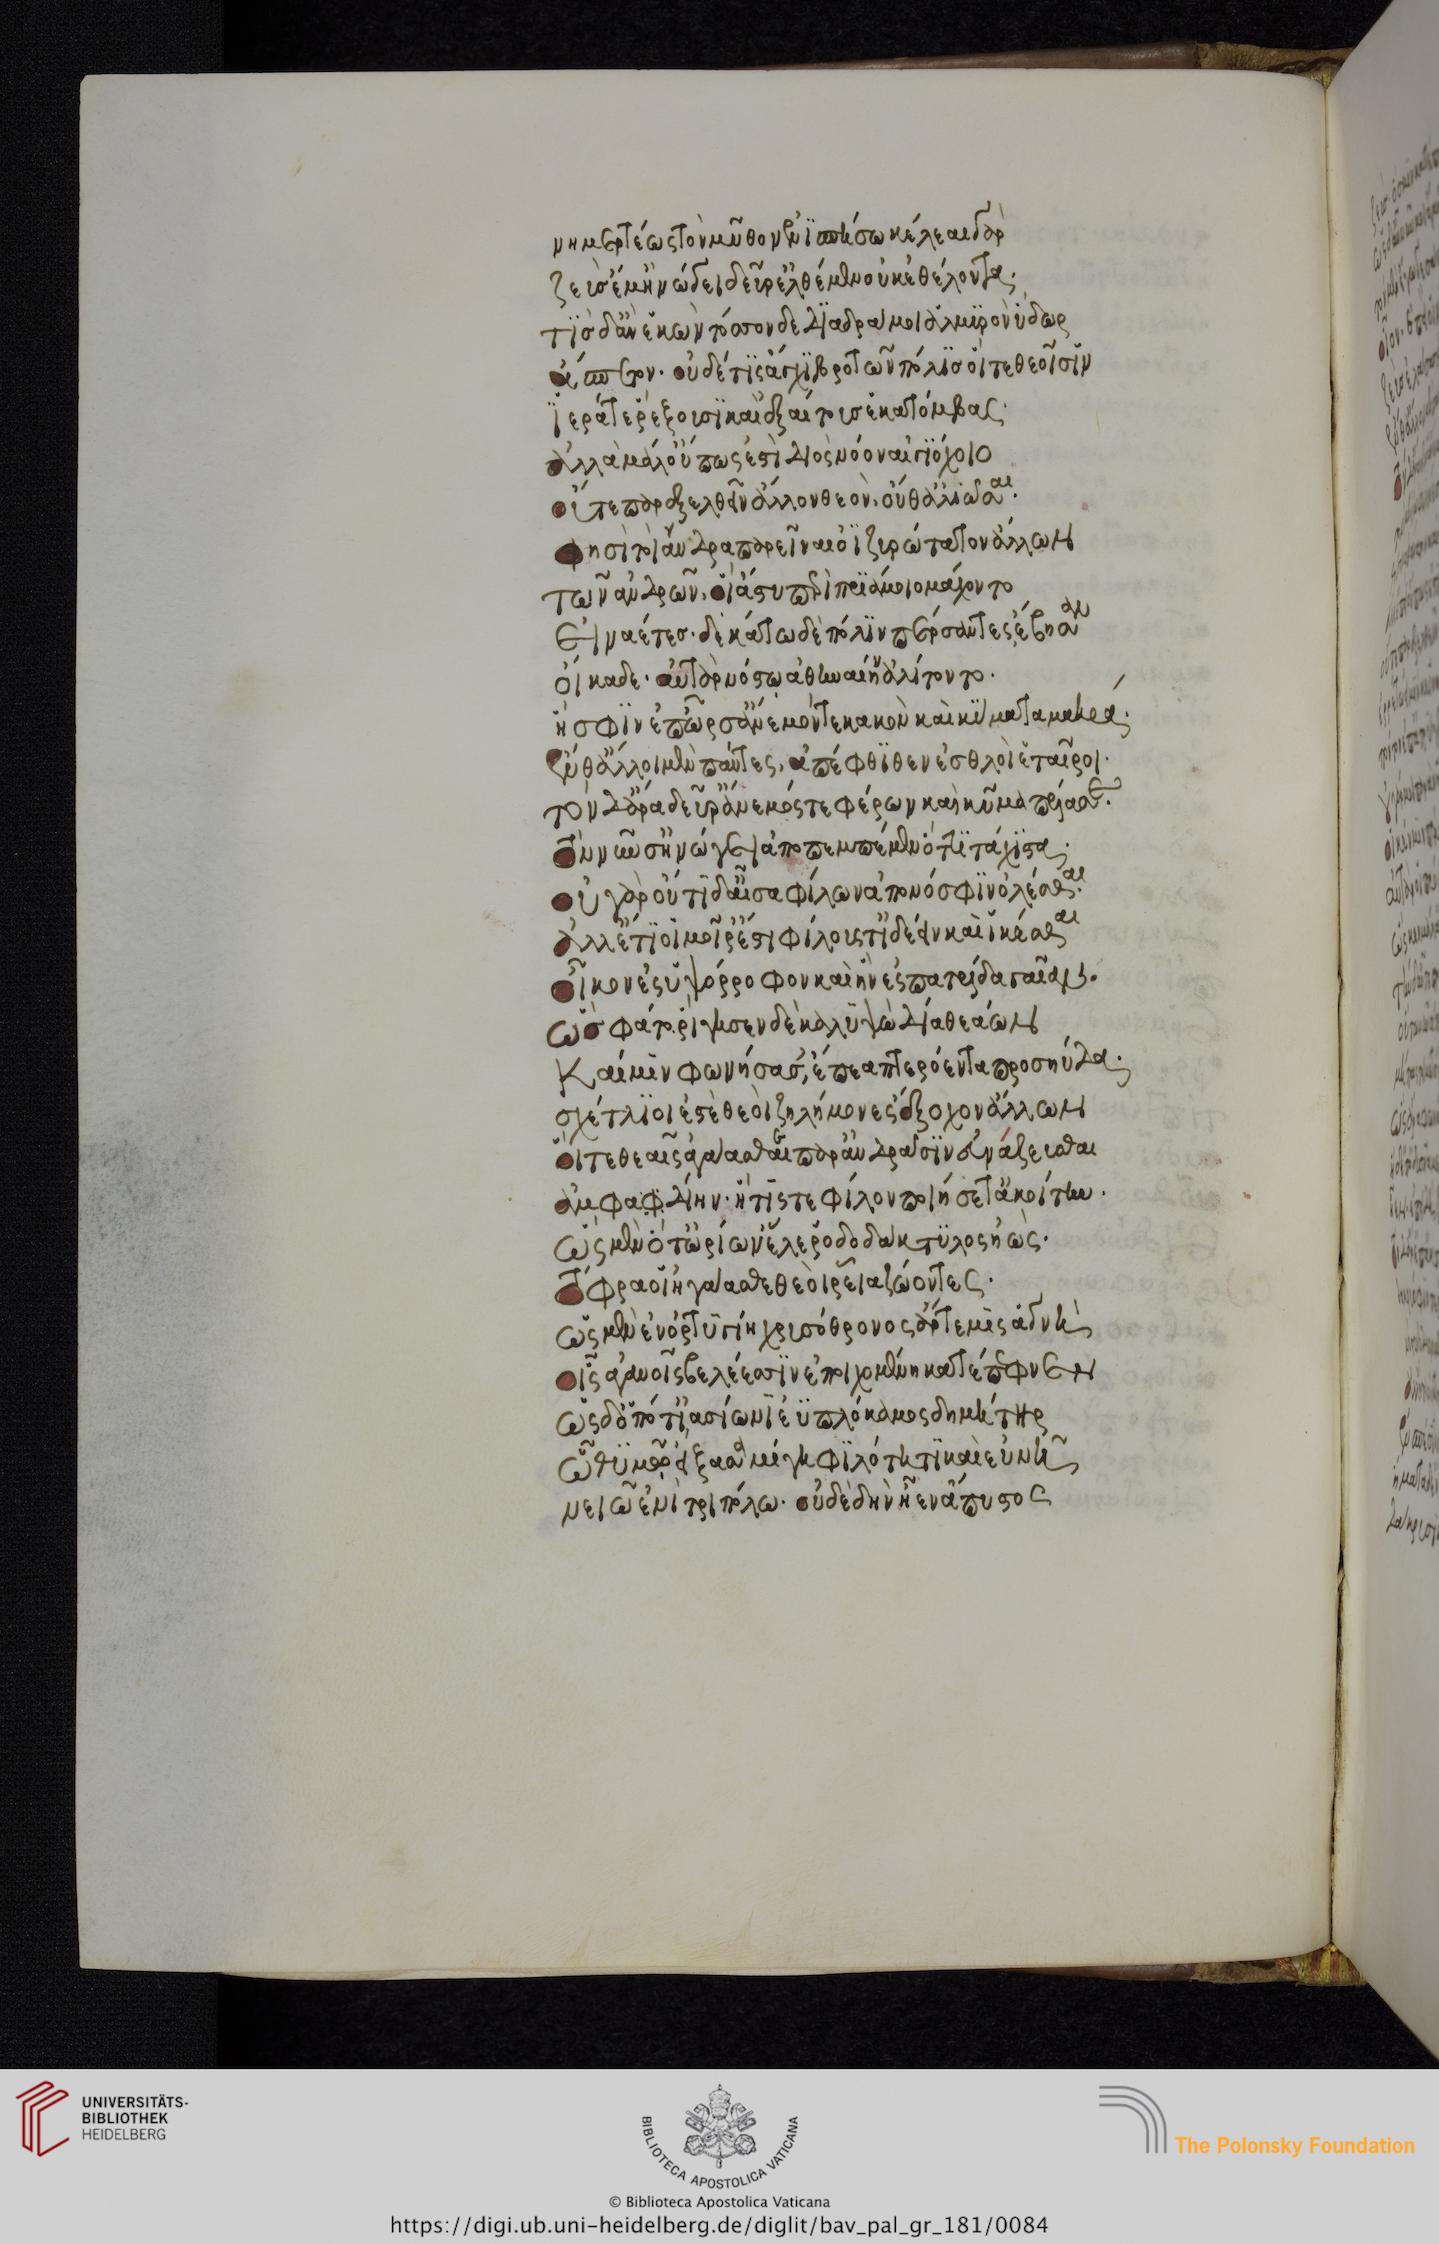 νημερτέως τὸν μῦθον ἐνϊσπήσω κέλεαι γὰρ
ζεὺς ἐμ' ἠνώγει δεῦρ' ἐλθέμεν οὐκ ἐθέλοντα·
τΐς δ' ἂν ἑκὼν τόσονδε δϊαδράμοι ἁλμϋρὸν ὕδωρ
ἄσπετον· οὐδέ τϊς ἄγχϊ βροτῶν πόλϊσ οἵτε θεοῖσϊν
ϊερά τε ῥέζουσϊ καὶ ἐξαίτουσ ἑκατόμβας·
ἀλλὰ μάλ' οὔπως ἐστὶ Διὸς νόον αἰγϊόχοιο
οὔτε παρεξελθεῖν ἄλλον θεὸν. οὔθ' ἁλϊῶσαι·
φησί τοι ἄνδρα παρεῖναι ὀϊζυρώτατον ἄλλων
τῶν ἀνδρῶν. οἳ ἄστυ περὶ πρϊάμοιο μάχοντο
εἰναέτεσ· δεκάτω δὲ πόλϊν πέρσαντες ἔβησαν
οἴκαδε· αὐτὰρ νόστω ἀθηναίην ἀλίτοντο·
ἥ σφϊν ἐπῶρσ' ἄνεμόντε κακὸν καὶ κύματα μακρά·
ἔνθ' ἄλλοι μὲν πάντες, ἀπέφθϊθεν ἐσθλοὶ ἑταῖροι·
τὸν δ' ἄρα δεῦρ' ἄνεμός τε φέρων καὶ κῦμα πέλασσε·
τὸν νῦν σ' ἠνώγει ἀποπεμπέμεν ὅττϊ τάχϊστα·
οὐ γὰρ οὔ τῆδ' αἶσα φίλων ἀπονόσφϊν ὀλέσθαι·
ἀλλ' ἔτϊ οἱ μοῖρ' ἐστι φίλους τ' ἰδέειν καὶ ἱκέσθαι
οἶκον ἐς ὑψόρροφον καὶ ἣν ἐς πατρίδα γαῖαν.
ὣσ φάτο ῥίγησεν δὲ καλυψὼ δῖα θεάων
Καί μϊν φωνήσασ', ἔπεα πτερόεντα προσηύδα·
σχέτλϊοι ἐστὲ θεοὶ ζηλήμονες ἔξοχον ἄλλων
οἵτε θεαῖς ἀγάασθαι παρ' ἀνδράσϊν εὐνάζεσθαι
ἀμφαδίην· ἤ τίς τε φίλον ποιήσετ' ἀκοίτην·
ὣς μὲν ὅτ' ὠρίων' ἕλε ῥοδοδάκτϋλος ἠώς·
τόφρα οἱ ἠγάασθε θεοὶ ῥεῖα ζώοντες·
ὥς μὲν ἐν ὀρτυγίη χρυσόθρονος ἄρτεμϊς ἁγνὴ
οἷς ἀγανοῖς βελέεσσϊν ἐποιχομένη κατέπεφνεν
ὣς δ' ὁπότ' ϊασίωνϊ ἐϋπλόκαμος δημήτηρ
ᾧ θϋμῷ εἴξασα μίγη φϊλότητϊ καὶ εὐνῆ
νειῶ ἐνὶ τριπόλω· οὐδὲ δὴν ἦεν ἄπυστος
UNIVERSITÄTS-
BIBLIOTHEK
HEIDELBERG
BIBLIOTECA APOSTOLICA VATICANA
The Polonsky Foundation
© Biblioteca Apostolica Vaticana
https://digi.ub.uni-heidelberg.de/diglit/bav_pal_gr_181/0084